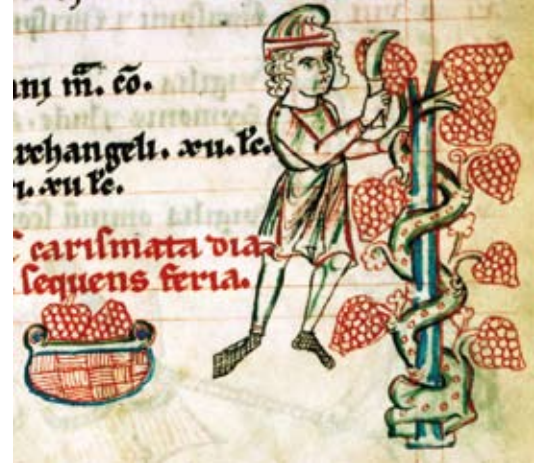 ani m̄. cō.
archangeli. xii. kc.
i. xii kc.
carismata dia
sequens feria.